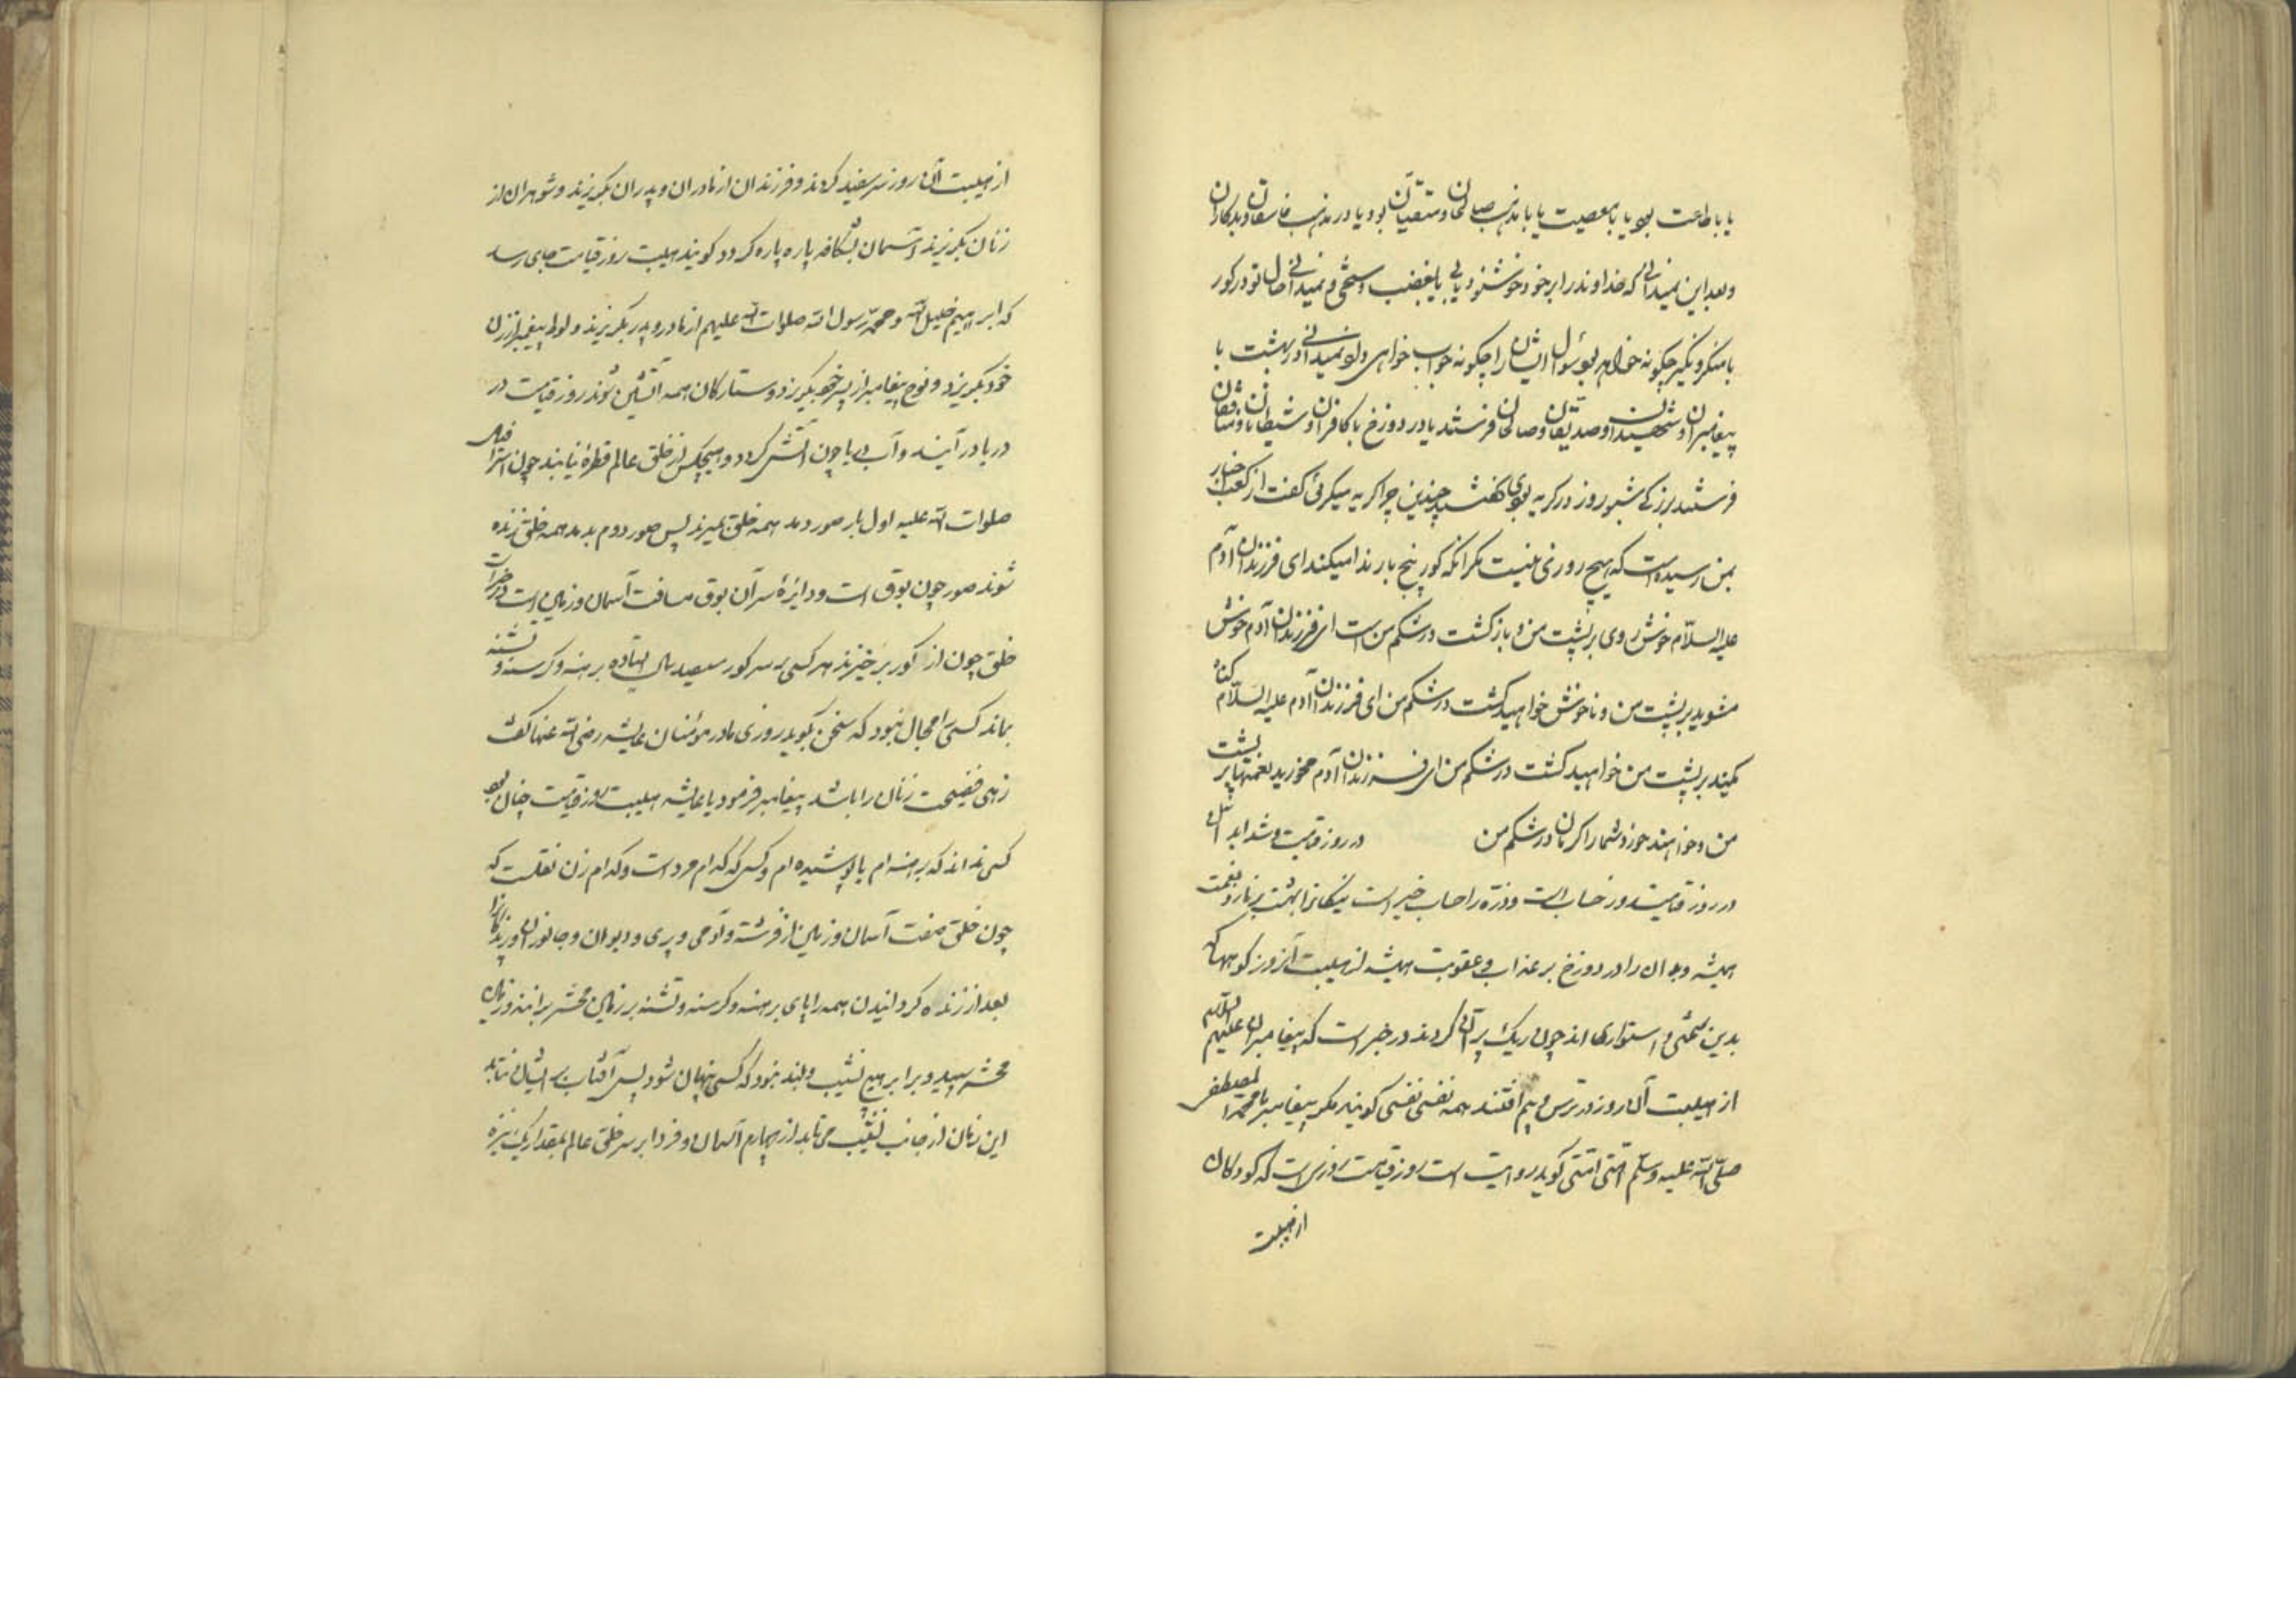 یا با طاعت بود یا با معصیت یا با مذهب صالحان و متقیان بود یا در مذهب فاسقان و بدکاران
و بعد این نمیدانی که خداوند را بر خود خوشنود یابی یا بغضب و خشمی و نمیدانی احوال تو در کور
با منکر و نکیر چکونه خواهد بود سؤال ایشان را چکونه جواب خواهی داد و نمیدانی در بهشت با
پیغامبران و شهیدان و صدیقان و صالحان فرستند یا در دوزخ با کافران و شیطانان و منافقان
فرستند بزرکی شب و روز در کریه بودی کفتند چندین چرا کریه میکرئی کفت از کعب احبار
بمن رسیده است که هیچ روزی نیست مکر آنکه کور پنج بار ندا میکند ای فرزندان آدم
علیه السلام خوش روی بر پشت من و باز کشت در شکم من است ای فرزندان آدم خوش
مشوید بر پشت من و ناخوش خواهید کشت در شکم من ای فرزندان آدم علیه السلام کناه
کنید بر پشت من خواهید کشت در شکم من ای فرزندان آدم مخورید نعمتها بر پشت
من و خواهند خورد شما را کرمان در شکم من در روز قیامت و شداید آن
در روز قیامت روز حساب است و ذره را حساب خیر است نیکانرا بهشت برناز و نعمت
همیشه و بدان را در دوزخ بر عذاب و عقوبت همیشه از هیبت آنروز کوهها که
بدین سختی و استواری اند چون ریک پران کردند در خبر است که پیغامبران علیهم السلام
از هیبت آن روز در ترس و بیم افتند همه نفسی نفسی کویند مکر پیغامبر ما محمد المصطفی
صلی الله علیه و سلم امتی امتی کوید روایت است روز قیامت روزی است که کودکان
از هیبت
از هیبت آن روز سر سفید کردند و فرزندان از مادران و پدران بکریزند و شوهران از
زنان بکریزند و آسمان بشکافد پاره پاره کردد کویند هیبت روز قیامت بجای رسد
که ابراهیم خلیل الله و محمد رسول الله صلوات الله علیهم از مادر و پدر بکریزند و لوط پیغمبر از زن
خود بکریزد و نوح پیغامبر از پسر خود بکریزد و ستارکان همه آتشین شوند روز قیامت در
دریا در آیند و آب دریا چون آتش کردد و هیچکس از خلق عالم قطرهٔ نیابند چون اسرافیل
صلوات الله علیه اول بار صور دمد همه خلق بمیرند پس صور دوم بدمد همه خلق زنده
شوند صور چون بوق است و دایرهٔ سر آن بوق مسافت آسمان و زمین است در خبر است
خلق چون از کور برخیزند هر کسی بر سر کور سیصد سال ایستاده برهنه و کرسنه و تشنه
بماند کسی را مجال نبود که سخن بکوید روزی مادر مؤمنان عایشه رضی الله عنها کفت
زهی فضیحت زنان را باشد پیغامبر فرمود یا عایشه هیبت روز قیامت چنان بود
کسی نداند که برهنه ام یا پوشیده ام و کس که کدام مرد است و کدام زن نقلست که
چون خلق هفت آسمان و زمین از فرشته و آدمی و پری و دیوان و جانوران و پرندکانرا
بعد از زنده کردانیدن همه را پای برهنه و کرسنه و تشنه بر زمین محشر برانند و زمین
محشر سپید و برابر هیچ نشیب و بلند نبود که کسی پنهان شود پس آفتاب بر ایشان بتابد
این زمان از جانب نقیب می تابد از چهارم آسمان و فردا بر سر خلق عالم بمقدار یک نیزه